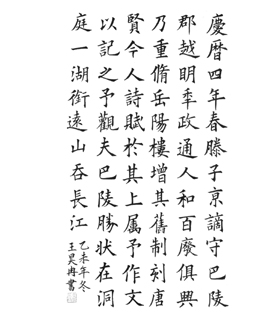 慶曆四年春滕子亰謫守巴陵
郡越明秊政通人和百廢俱興
乃重脩岳陽樓增其舊制刻唐
賢今人詩賦於其上属予作文
以記之予觀夫巴陵勝狀在洞
庭一湖銜遠山吞長江
乙未年冬
王昊冉書